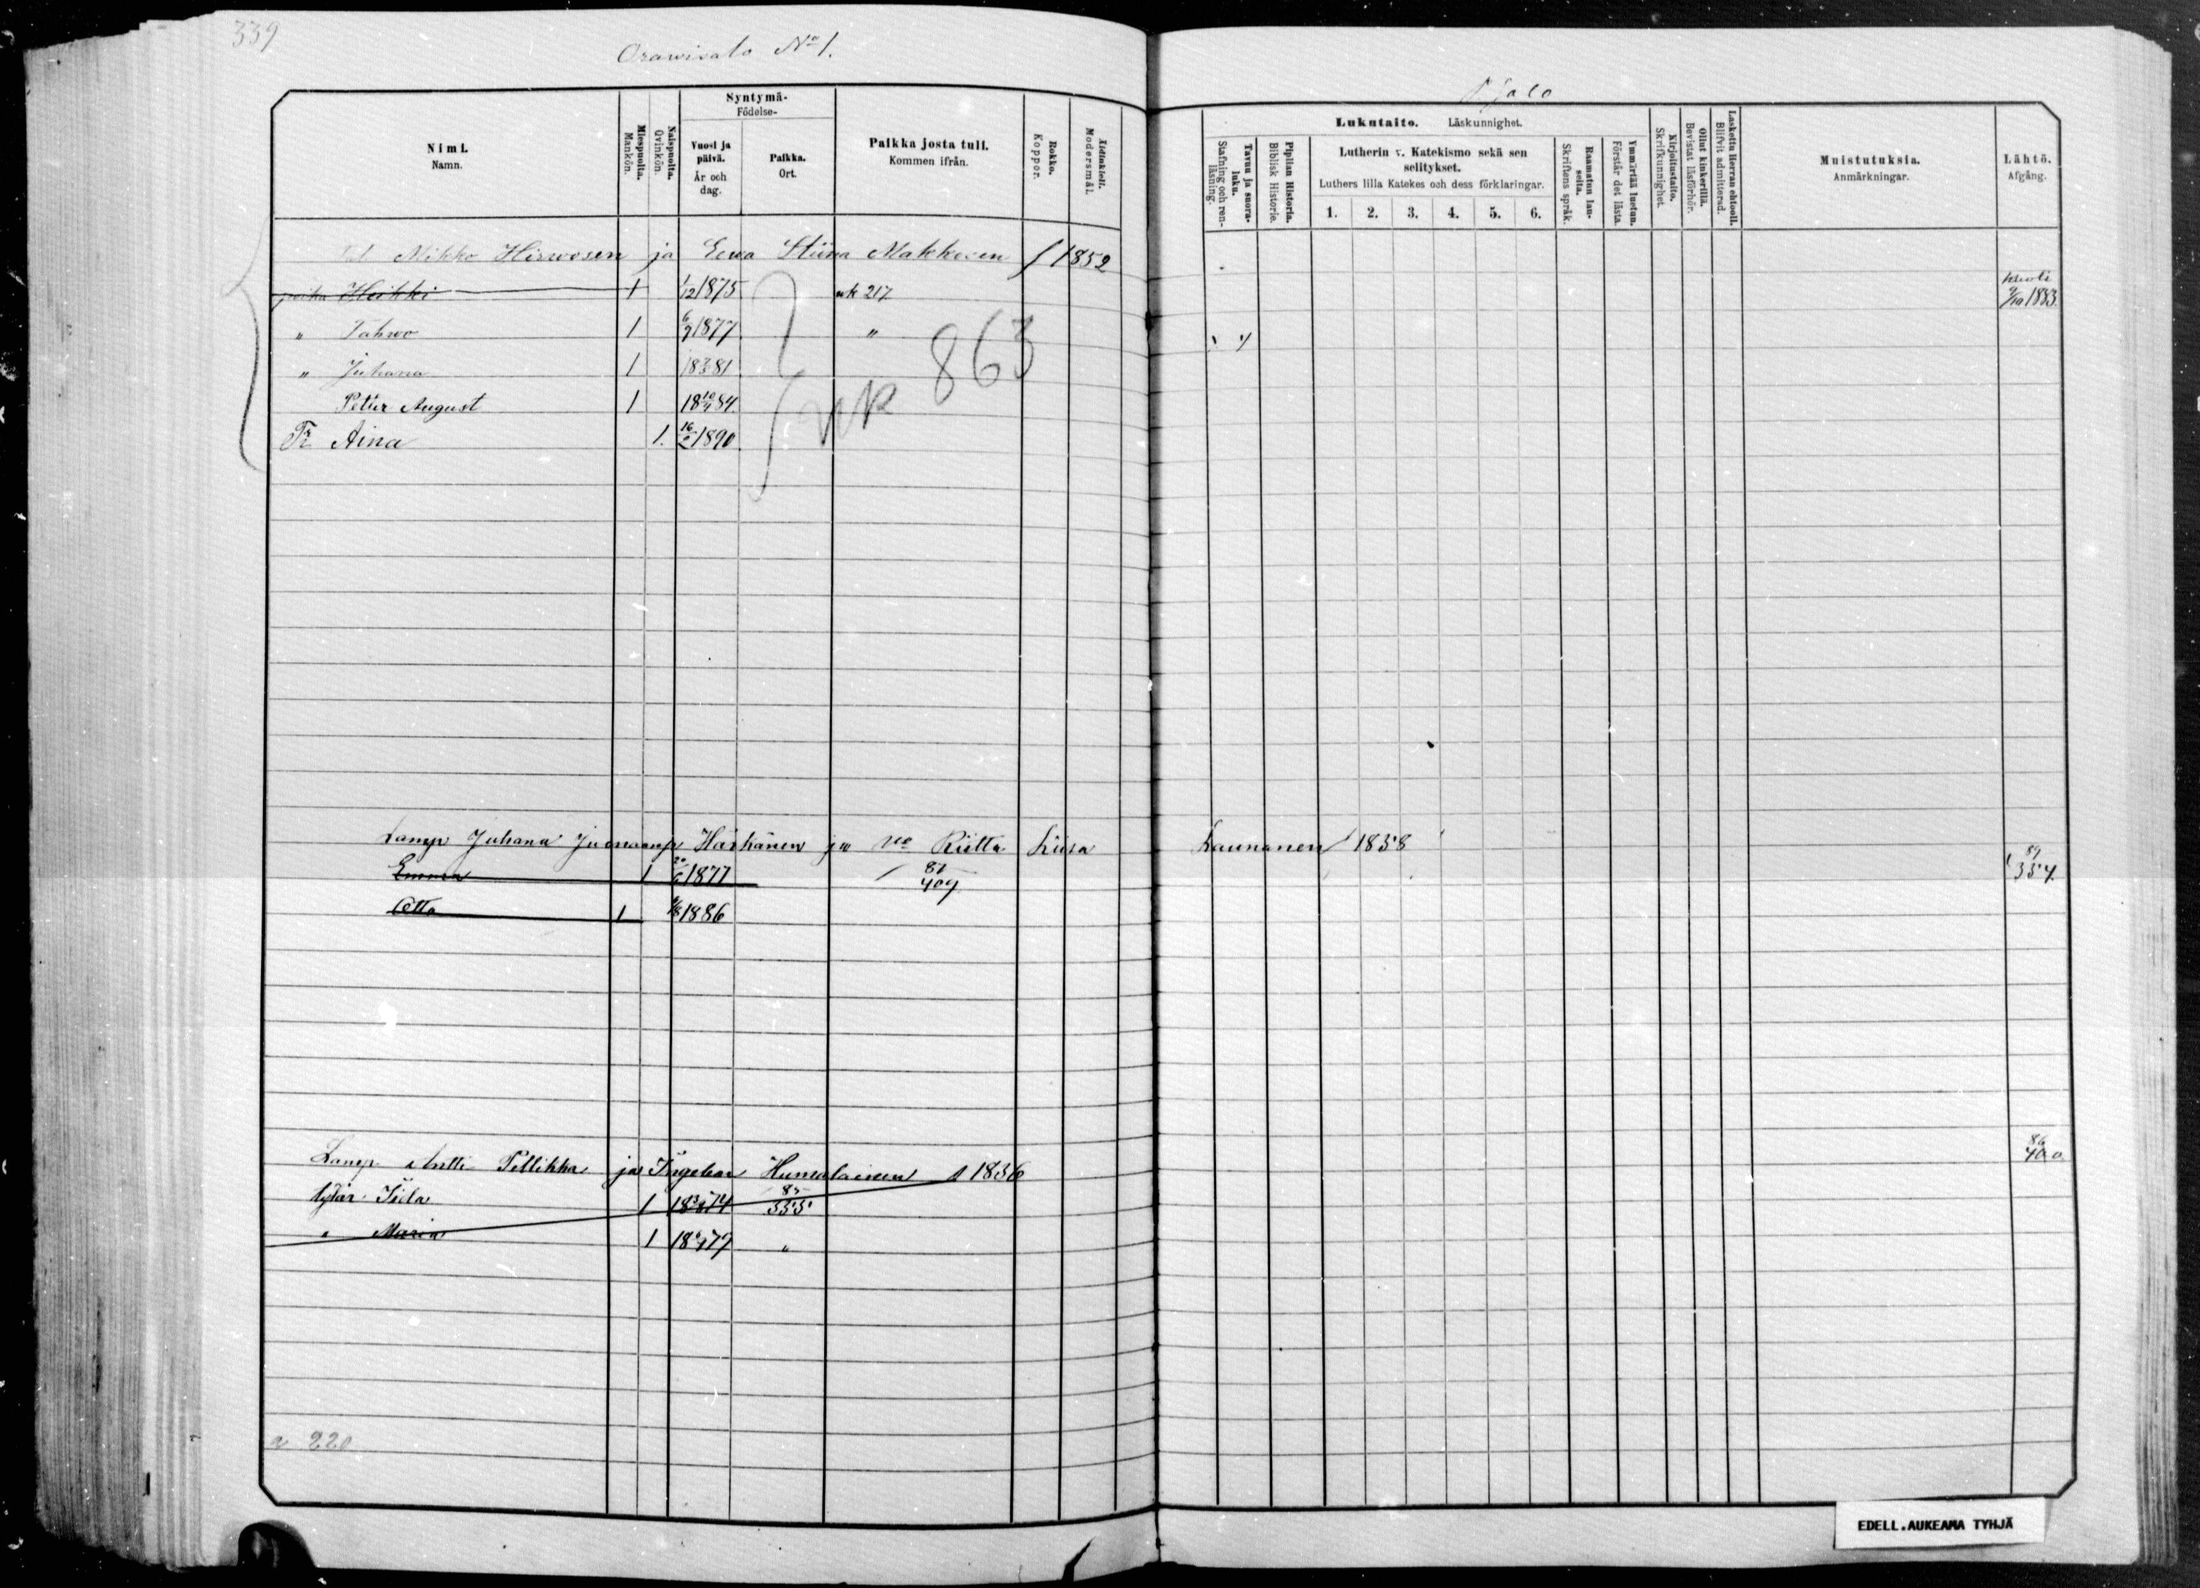 339
Orawisalo No 1.
Syntymä-
Födelse-
Nimi.
Namn.
Miespuolia.
Mankön.
Naispuolia.
Qvinkön.
Vuosi ja päivä.
År och dag.
Paikka.
Ort.
Paikka josta tuli.
Kommen ifrån.
Rokko.
Koppor.
Äidinkieli.
Modersmål.
Mikko Hirwosen ja Eewa Stiina Makkosen / 1852
poika Heikki 1 1/12 1875 uk 217
" Tahwo 1 6/9 1877 "
" Juhana 1 18 3 81
Petter August 1 18 10/4 84
Tr Aina 1. 16/2 1890
863
Lamp Juhana Härkänen ja wo Riitta Liisa
Emma 1 1877 81/409
Otto 1 1/8 1886
Lamp Antti Pellikka ja Ingebor Humalainen s 1836
tytär Iida 1 74 85/355
" Maria 1 79 "
a 220
Lukutaito. Läskunnighet.
Tavuu ja suora-luku.
Stafning och ren-läsning.
Piplian Historia.
Biblisk Historie.
Lutherin v. Katekismo sekä sen selitykset.
Luthers lilla Katekes och dess förklaringar.
1. 2. 3. 4. 5. 6.
Raamatun lau-seita.
Skriftens språk.
Ymmärtää luetun.
Förstår det lästa.
Kirjoitustaito.
Skrifkunnighet.
Ollut kinkerillä.
Bevistat läsförhör.
Laskettu Herran ehtooll.
Blifvit admitterad.
Muistutuksia.
Anmärkningar.
Lähtö.
Afgång.
kuoli
9/10 1883
Launonen / 1838
89/354
86/400
EDELL.AUKEAMA TYHJÄ